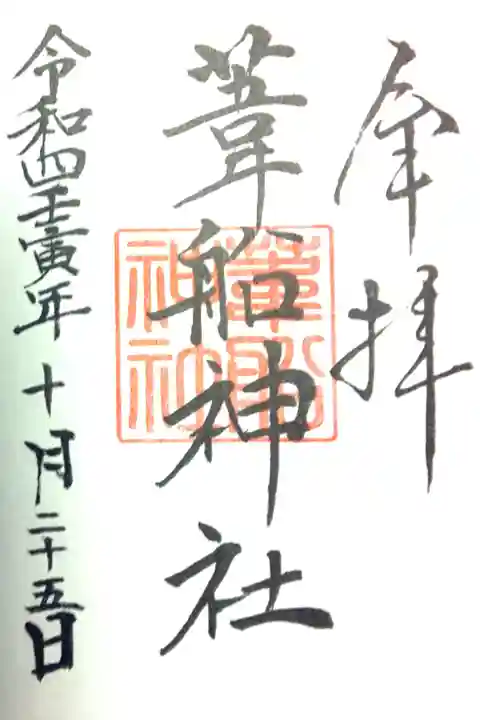 奉拝
葦船神社
葦船
神社
令和四壬寅年十月二十五日